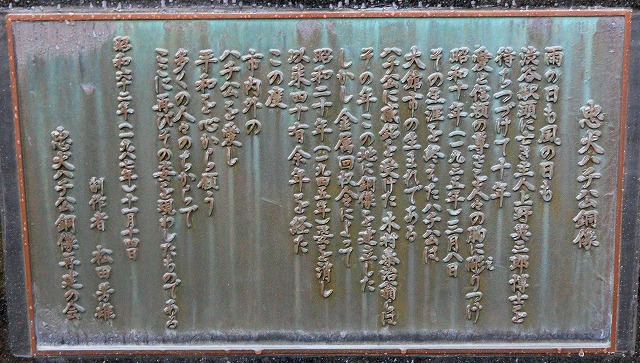 忠犬ハチ公銅像
雨の日も風の日も
渋谷駅頭に亡き主人上野英三郎博士を
待ちつづけて十年
愛と信頼の尊さを人々の胸に彫りつけ
昭和十年(一九三五年)三月八日
その生涯を終えたハチ公は
大館市の生まれである
ハチ公に感銘を受けた木村泰治翁は
その年この地に銅像を建立した
しかし金属回収令によって
昭和二十年(一九四五年)姿を消し
以来四十有余年を経た
この度
市内外の
ハチ公を愛し
平和を心から願う
多くの人々の力によって
ここに再びその姿を現わしたものである
昭和六十二年(一九八七年)十一月十四日
制作者 松田芳雄
忠犬ハチ公銅像再建の会